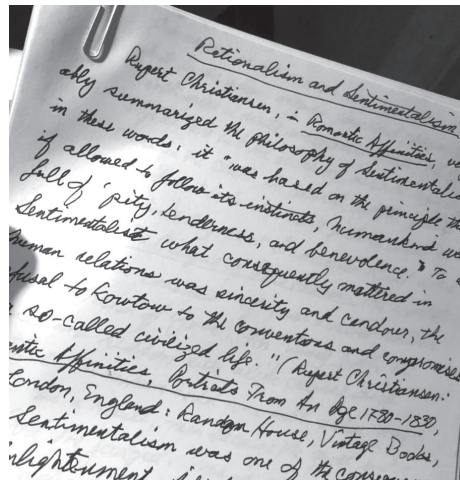 Rationalism and Sentimentalism
Rupert Christiansen, in Romantic Affinities, ve
ably summarized the philosophy of Sentimentalis
in these words: it "was based on the principle tha
if allowed to follow its instincts, humankind wo
full of 'pity, tenderness, and benevolence.' To a
Sentimentalist what consequently mattered in
human relations was sincerity and candour, the
fusal to kowtow to the conventions and compromises
so-called civilized life." (Rupert Christiansen:
antic Affinities, Portraits From An Age 1780-1830,
London, England: Random House, Vintage Books,
Sentimentalism was one of the conseque
nlightenment